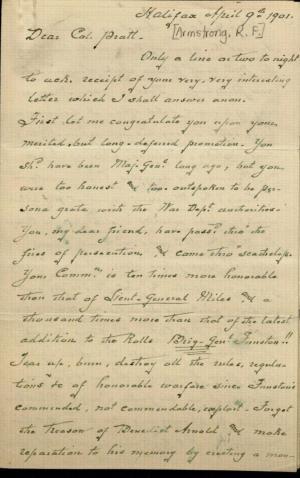 Halifax April 9th 1901.
[Armstrong, R. F.]
Dear Col. Pratt-
Only a line or two to night
to ack. receipt of your very, very interesting
letter which I shall answer anon.
First let me congratulate you upon your
merited, but long-deferred promotion. You
shd. have been Maj. Genl. long ago, but you
were too honest and too outspoken to be per-
sona grata with the War Dept. authorities.
You, my dear friend, have passd. thro' the
fires of persecution and come thro' scatheless.
Your Commn. is ten times more honorable
than that of Lieut-General Miles and a
thousand times more than that of the latest
addition to the Rolls Brig-Genl Funston!!
Tear up, burn, destroy all the rules, regula-
tions &c of honorable warfare since Funston's
commended, not commendable, exploit - Forget
the treason of Benedict Arnold and make
reparation to his memory by creating a mon-